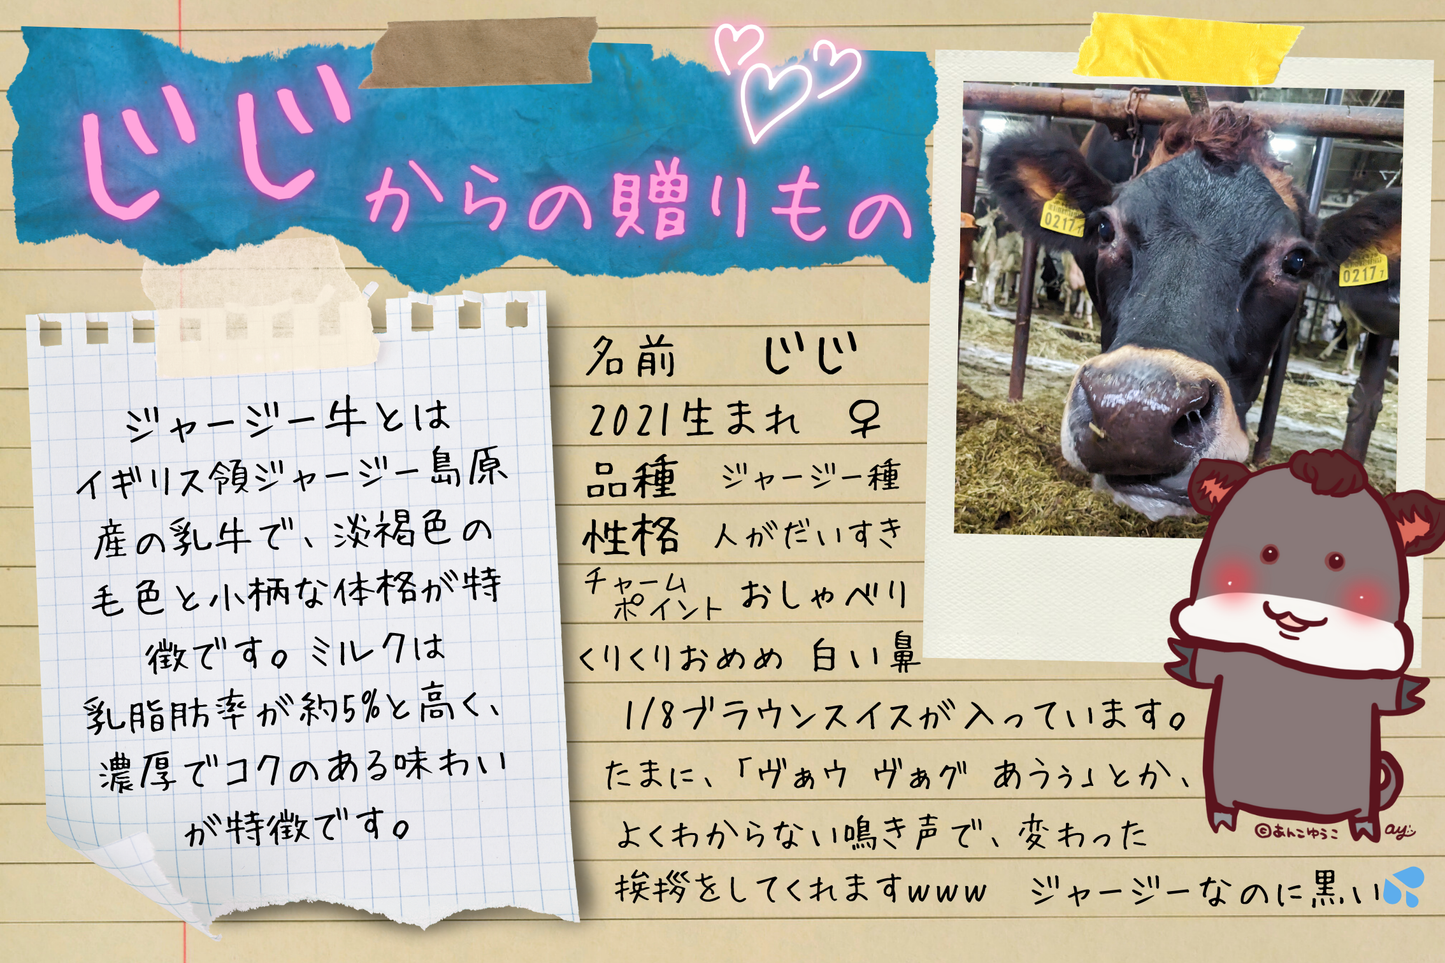 じじからの贈りもの
ジャージー牛とは
イギリス領ジャージー島原
産の乳牛で、淡褐色の
毛色と小柄な体格が特
徴です。ミルクは
乳脂肪率が約5%と高く、
濃厚でコクのある味わい
が特徴です。
名前 じじ
2021生まれ ♀
品種 ジャージー種
性格 人がだいすき
チャームポイント おしゃべり
くりくりおめめ 白い鼻
1/8ブラウンスイスが入っています。
たまに、「ヴぁウ ヴぁグ あうぅ」とか、
よくわからない鳴き声で、変わった
挨拶をしてくれますwww ジャージーなのに黒い
0217
0217 7
©あんこゆうこ
ay